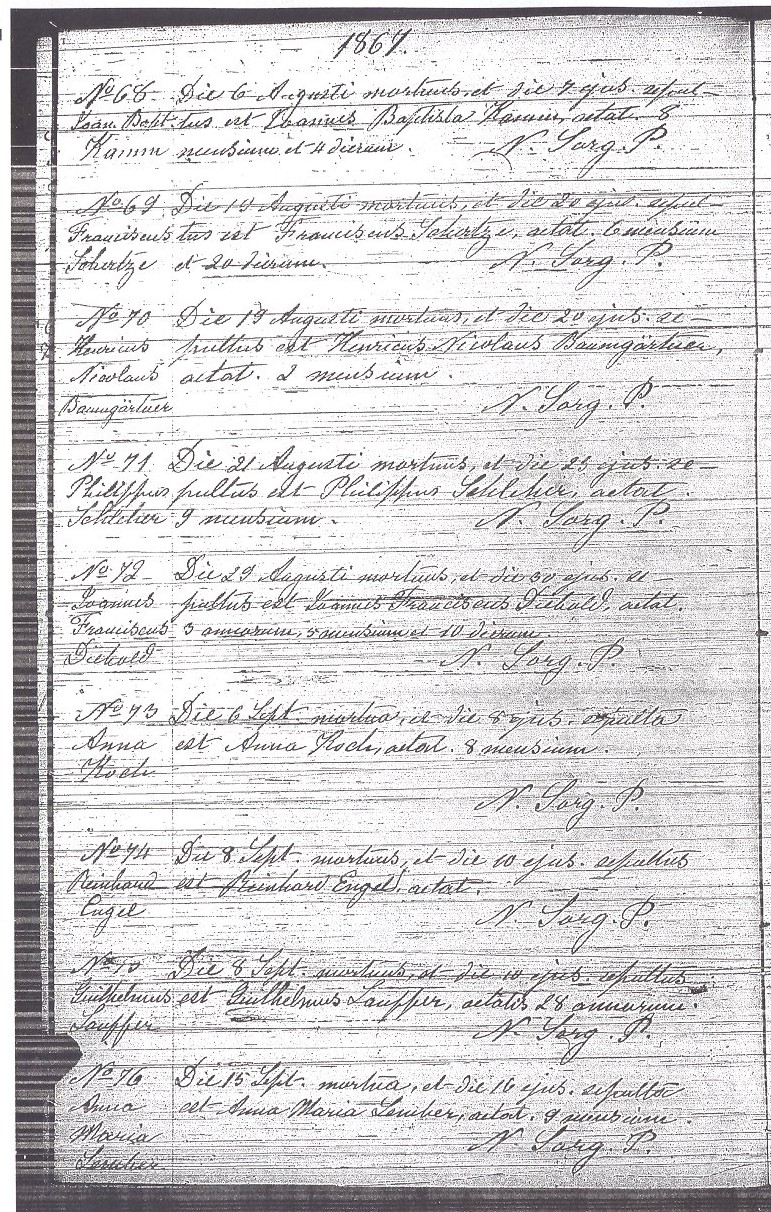 1867.
No 68 Die 6 Augusti mortuus, et die 7 ejus. sepul–
Joan. Bapt tus est Joannes Baptista Kamm, aetat. 8
Kamm mensium et 4 dierum. N. Sorg. P.
No 69 Die 19 Augusti mortuus, et die 20 ejus. sepul–
Franciscus tus est Franciscus Schertze, aetat. 6 mensium
Schertze et 20 dierum. N. Sorg. P.
No 70 Die 19 Augusti mortuus, et die 20 ejus. se–
Henricus pultus est Henricus Nicolaus Baumgärtner,
Nicolaus aetat. 2 mensium.
Baumgärtner N. Sorg. P.
No 71 Die 21 Augusti mortuus, et die 23 ejus. se–
Philippus pultus est Philippus Schlcher, aetat.
Schlcher 9 mensium. N. Sorg. P.
No 72 Die 29 Augusti mortuus, et die 30 ejus. se–
Joannes pultus est Joannes Franciscus Diebold, aetat.
Franciscus 3 annorum, 5 mensium et 10 dierum.
Diebold N. Sorg. P.
No 73 Die 6 Sept. mortua, et die 8 ejus. sepulta
Anna est Anna Koch, aetat. 8 mensium.
Koch
N. Sorg. P.
No 74 Die 8 Sept. mortuus, et die 10 ejus. sepultus
Reinhard est Reinhard Engel, aetat.
Engel N. Sorg. P.
No 75 Die 8 Sept. mortuus, et die 10 ejus. sepultus
Guilhelmus est Guilhelmus Laupper, aetatis 28 annorum.
Laupper N. Sorg. P.
No 76 Die 15 Sept. mortua, et die 16 ejus. sepulta
Anna est Anna Maria Lember, aetat. 9 mensium.
Maria N. Sorg. P.
Lember